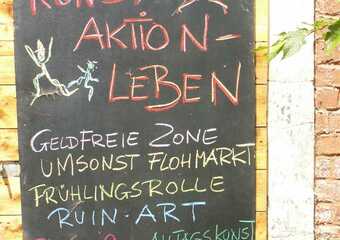 KUNST
AKTION-
LEBEN
GELDFREIE ZONE
UMSONST FLOHMARKT
FRÜHLINGSROLLE
RUIN·ART
ALLTAGSKUNST